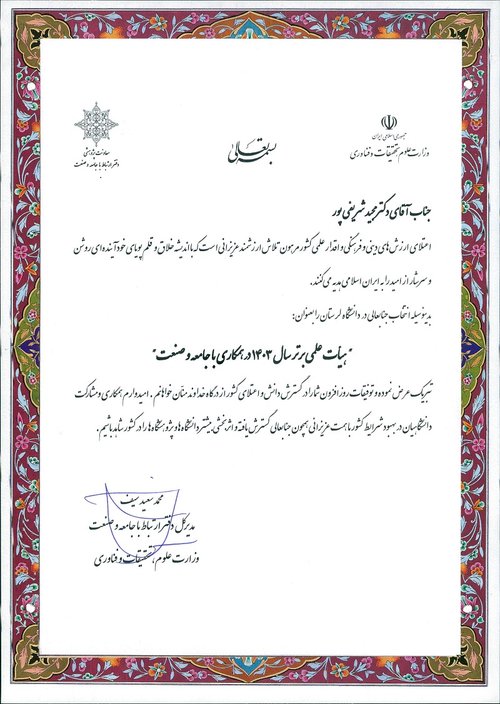 بسمه تعالی
جمهوری اسلامی ایران
وزارت علوم، تحقیقات و فناوری
معاونت پژوهشی
دفتر ارتباط با جامعه و صنعت
جناب آقای دکتر مجید شریفی پور
اعتلای ارزش های دینی و فرهنگی و اقتدار علمی کشور مرهون تلاش ارزشمند عزیزانی است که با اندیشه خلاق و قلم پویای خود آینده ای روشن
و سرشار از امید را به ایران اسلامی هدیه می کنند.
بدینوسیله انتخاب جنابعالی در دانشگاه لرستان را بعنوان:
"هیأت علمی برتر سال ۱۴۰۳ در همکاری با جامعه و صنعت"
تبریک عرض نموده و توفیقات روزافزون شما را در گسترش دانش و اعتلای کشور از درگاه خداوند منان خواهانم. امیدوارم همکاری و مشارکت
دانشگاهیان در بهبود شرایط کشور با همت عزیزانی همچون جنابعالی گسترش یافته و اثربخشی بیشتر دانشگاه ها و پژوهشگاه ها را در کشور شاهد باشیم.
محمد سعید سیف
مدیر کل دفتر ارتباط با جامعه و صنعت
وزارت علوم، تحقیقات و فناوری